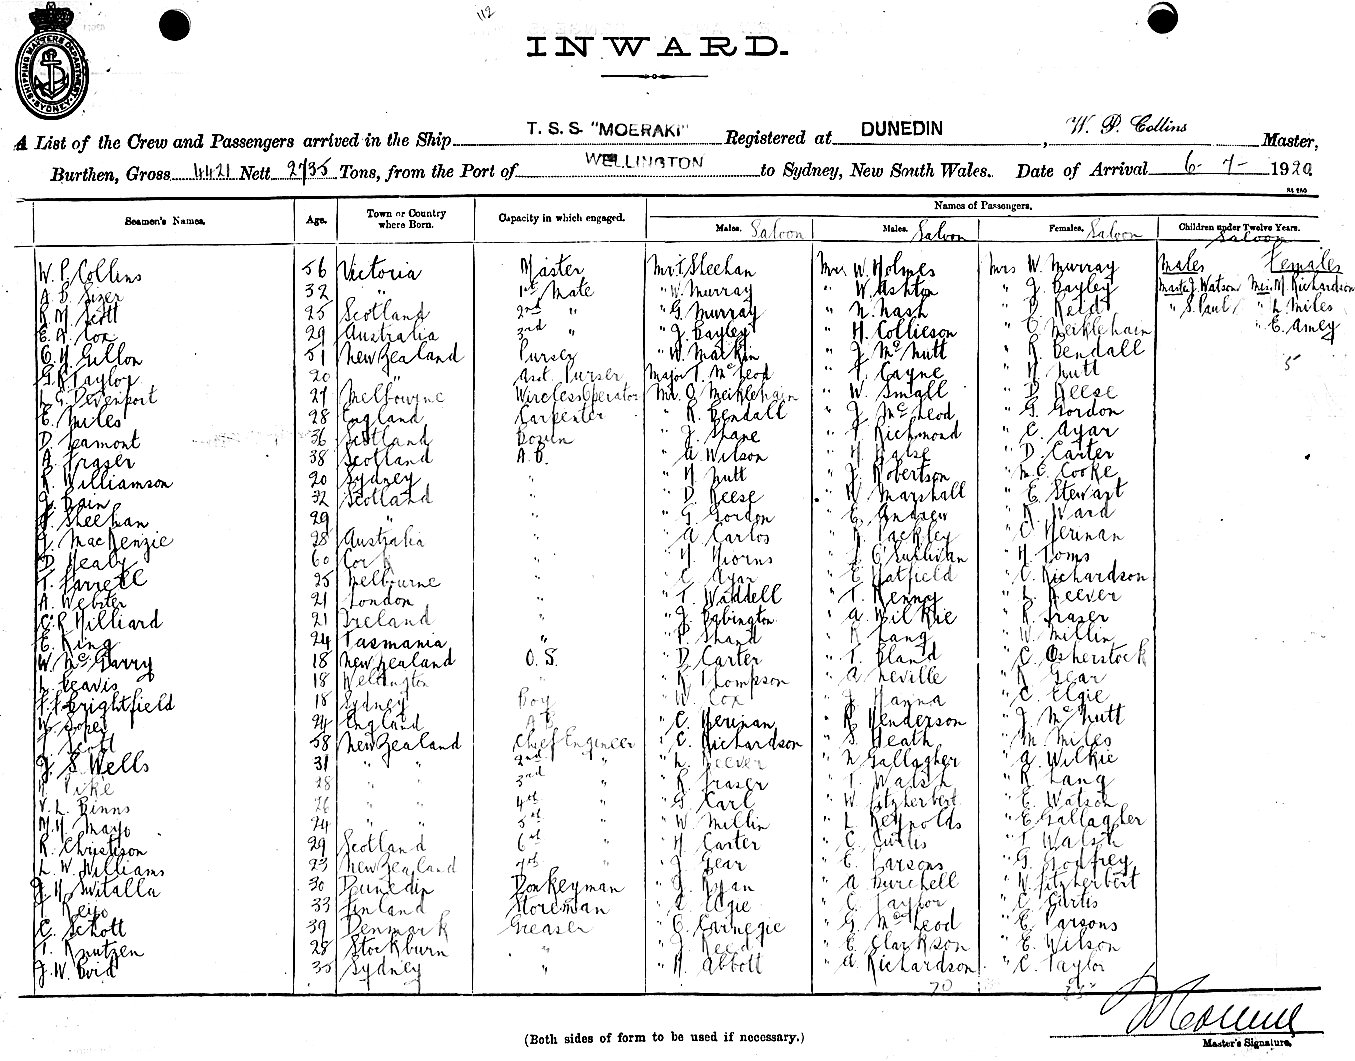 112
SHIPPING MASTERS DEPARTMENT SYDNEY
INWARD.
A List of the Crew and Passengers arrived in the Ship T. S. S. "MOERAKI" Registered at DUNEDIN, W. P. Collins Master,
Burthen, Gross 4421 Nett 2735 Tons, from the Port of WELLINGTON to Sydney, New South Wales. Date of Arrival 6-7-1920
Names of Passengers.
Seamen's Names. Age. Town or Country where Born. Capacity in which engaged. Males. Saloon Males. Saloon Females. Saloon Children under Twelve Years. Saloon
W. P. Collins 56 Victoria Master Mr T Sheehan Mr W. Holmes Mrs W. Murray Males Females
A. B. Sizer 32 " 1st Mate " W Murray " W. Ashton " J. Bayley Master J. Watson Miss M. Richardson
R. M. Scott 25 Scotland 2nd " " G. Murray " N. Nash " D. Reid " S. Paul " L. Miles
E. A. Cox 29 Australia 3rd " " J. Bayley " H. Collieson " O. Meiklehain " E. Amey
C. H. Gillon 51 New Zealand Purser " W. Mackin " J. McNutt " R. Bendall 5
G. R. Taylor 20 " Asst. Purser Major T. McLeod " T. Cayne " H. Nutt
L. G. Devenport 27 Melbourne Wireless Operator Mr. O. Meiklehain " W. Small " D. Reese
E. Miles 28 England Carpenter " R. Bendall " J. McLeod " G. Gordon
D. Leamont 36 Scotland Bosun " J. Shane " T. Richmond " C. Ayar
A. Fraser 38 Scotland A.B. " A. Wilson " H. Halse " D. Carter
R. Williamson 20 Sydney " " H. Nutt " J. Robertson " M. E. Cooke
J. Bain 32 Scotland " " D. Reese " W. Marshall " E. Stewart
J. Sheehan 29 " " " G. Gordon " E. Andrew " R. Ward
J. MacKenzie 28 Australia " " A. Carlos " R. Tackley " C. Herman
D. Healy 60 Cork " " H. Hiorns " L. O'Sullivan " H. Toms
T. Farrell 25 Melbourne " " C. Ayar " E. Hatfield " C. Richardson
A. Webster 21 London " " T. Waddell " T. Kenny " L. Keever
C. R. Hilliard 21 Ireland " " J. Babington " A. Wilkie " R. Fraser
E. King 24 Tasmania " " P. Shand " R. Lang " W. Millin
W. McGarry 18 New Zealand O.S. " D. Carter " T. Bland " C. Osherstock
L. Leavis 18 Wellington " " R. Thompson " A. Neville " R. Gear
F. F. Brightfield 18 Sydney Boy " W. Cox " J. Hanna " C. Elgie
W. Soper 24 England A.B. " C. Herman " R. Henderson " J. McNutt
J. Scott 58 New Zealand Chief Engineer " C. Richardson " S. Heath " M. Miles
J. S. Wells 31 " " 2nd " " L. Keever " N. Gallagher " A. Wilkie
Pike 28 " " 3rd " " R. Fraser " T. Walsh " R. Lang
V. L. Binns 26 " " 4th " " G. Carl " W. Fitzherbert " E. Watson
M. H. Mayo 24 " " 5th " " W. Millin " L. Reynolds " E. Gallagher
R. Christison 29 Scotland 6th " " H. Carter " C. Curtis " T. Walsh
L. W. Williams 23 New Zealand 7th " " J. Gear " E. Parsons " G. Godfrey
J. H. Switalla 30 Dunedin Donkeyman " J. Ryan " A. Burchell " W. Fitzherbert
Keijo 33 Finland Storeman " C. Elgie " C. Taylor " C. Curtis
C. Schott 39 Denmark Greaser " C. Carnegie " G. McLeod " E. Parsons
T. Knutzen 28 Stockburn " " J. Reed " E. Clarkson " E. Wilson
J. W. Boid 35 Sydney " " H. Abbott " A. Richardson " C. Taylor
70 35
(Both sides of form to be used if necessary.)
Master's Signature.